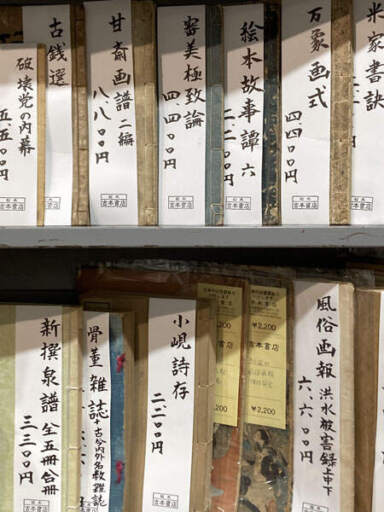 米家書訣
万象画式
四、四〇〇円
絵本故事譚 六
二、二〇〇円
審美極致論
四、四〇〇円
甘斎画譜 二編
八、八〇〇円
古銭選
破壊党の内幕
五、五〇〇円
吉本書店
吉本書店
吉本書店
吉本書店
吉本書店
吉本書店
風俗画報 洪水被害録 上中下
六、六〇〇円
¥2,200
¥2,200
¥2,200
¥2,200
小峴詩存
二、二〇〇円
骨董雑誌
+古今内外名数雑誌
新撰泉譜 全五冊合冊
三三〇〇円
吉本書店
吉本書店
吉本書店